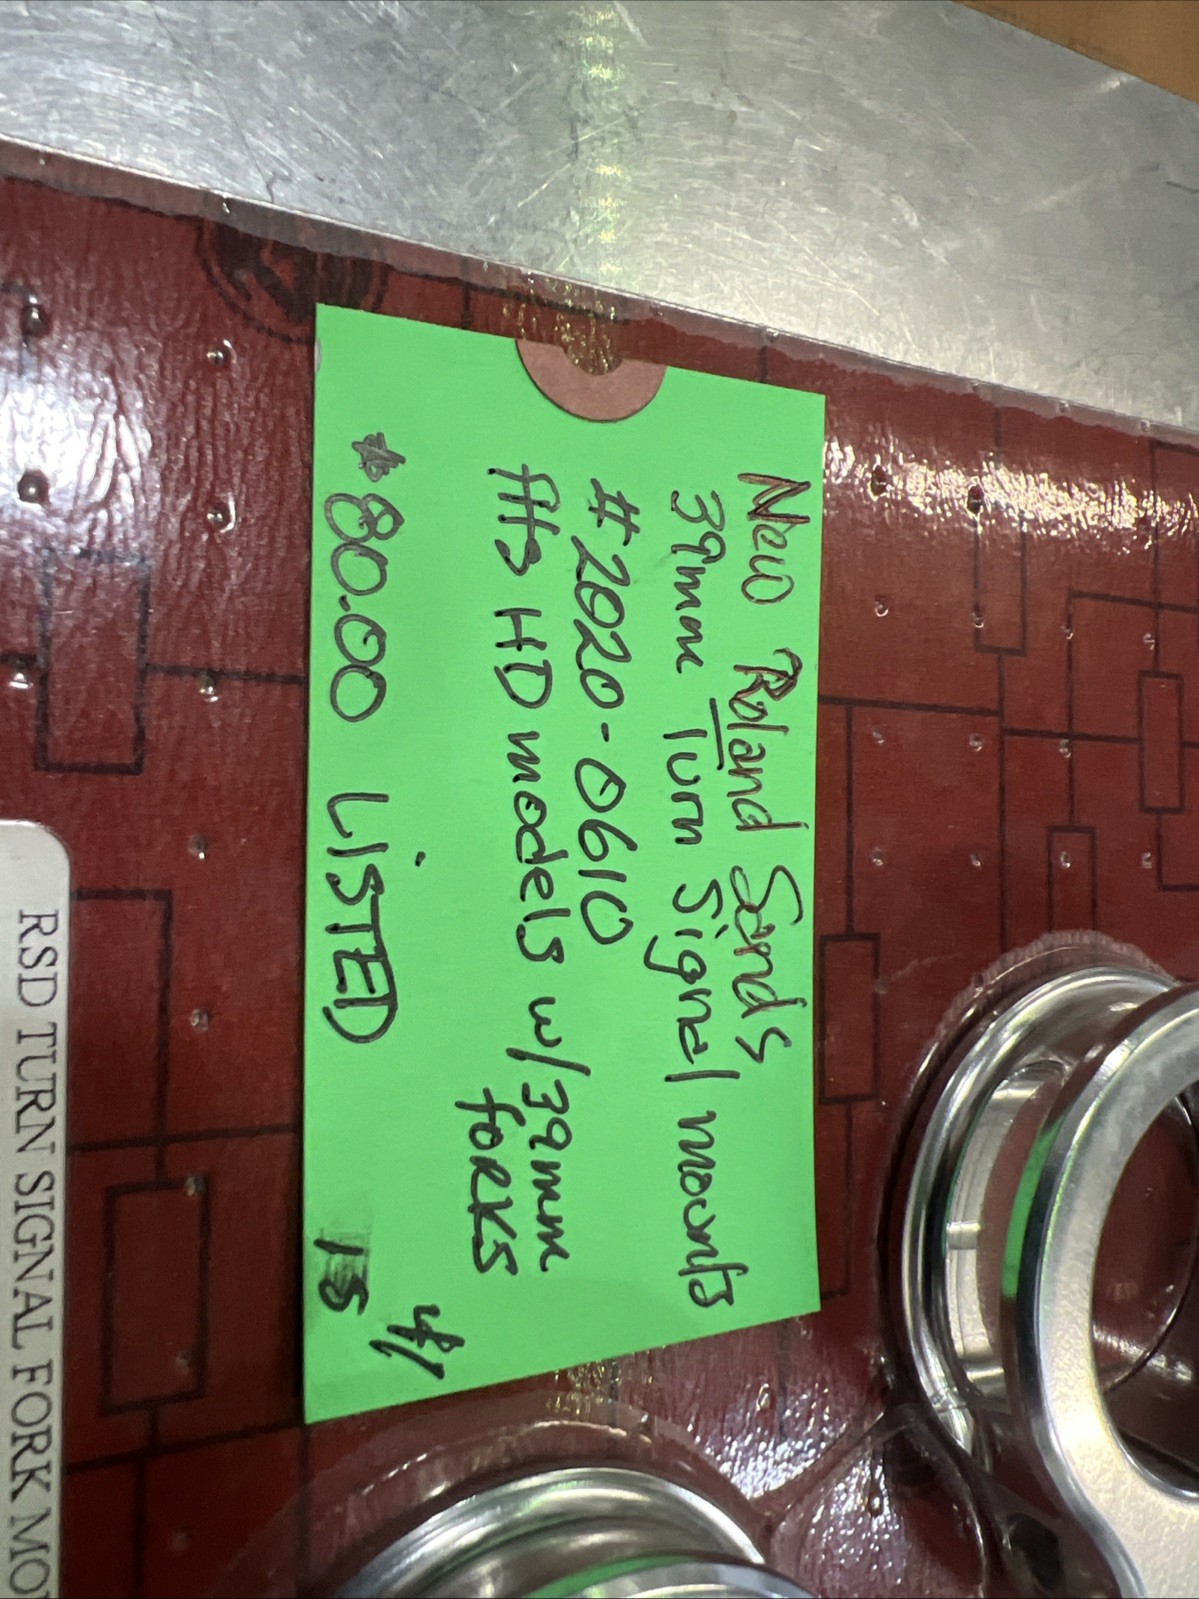 New Roland Sands
39mm Turn Signal mounts
#2020-0610
fits HD models w/39mm
forks
80.00 LISTED
RSD TURN SIGNAL FORK MO